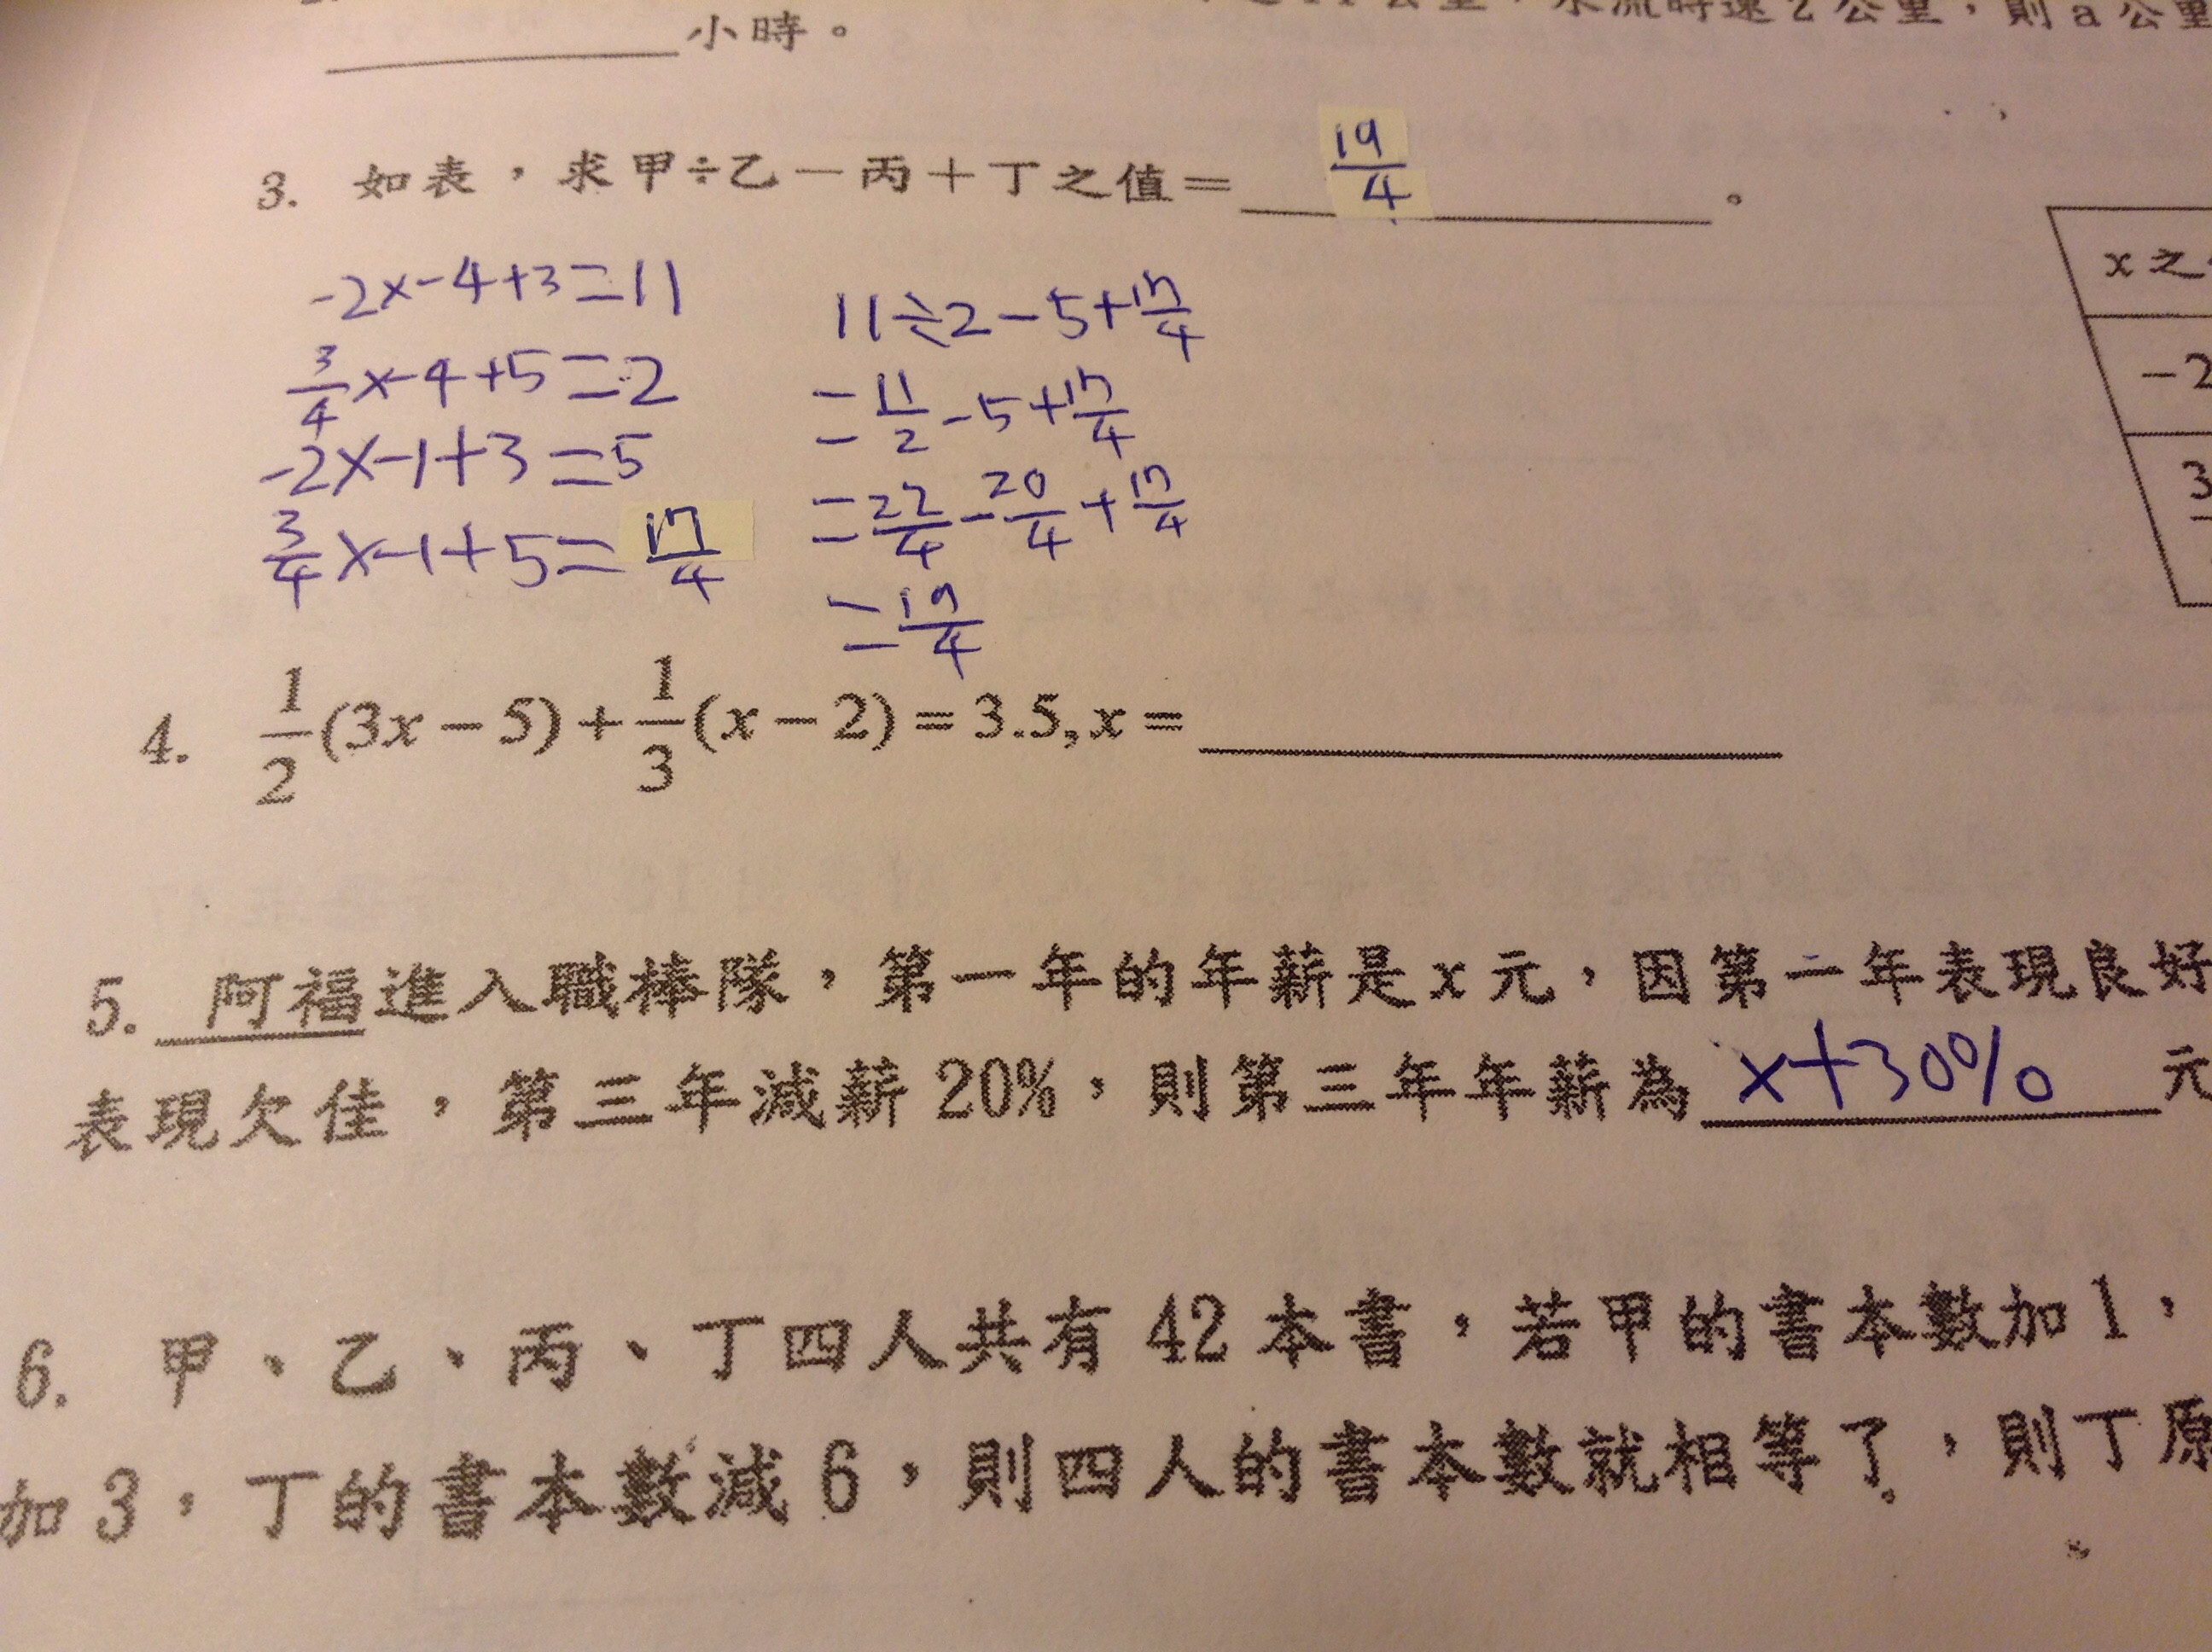 小時。
水流時速2公里，則a公里
3. 如表，求甲÷乙－丙＋丁之值＝ 19/4 。
-2×-4+3=11
3/4×-4+5=2
-2×-1+3=5
3/4×-1+5=17/4
11÷2-5+17/4
=11/2-5+17/4
=22/4-20/4+17/4
=19/4
x之
-2
3
4. 1/2(3x-5)+1/3(x-2)=3.5,x=
5. 阿福進入職棒隊，第一年的年薪是x元，因第一年表現良好
表現欠佳，第三年減薪20%，則第三年年薪為 x+30% 元
6. 甲、乙、丙、丁四人共有42本書，若甲的書本數加1，
加3，丁的書本數減6，則四人的書本數就相等了，則丁原